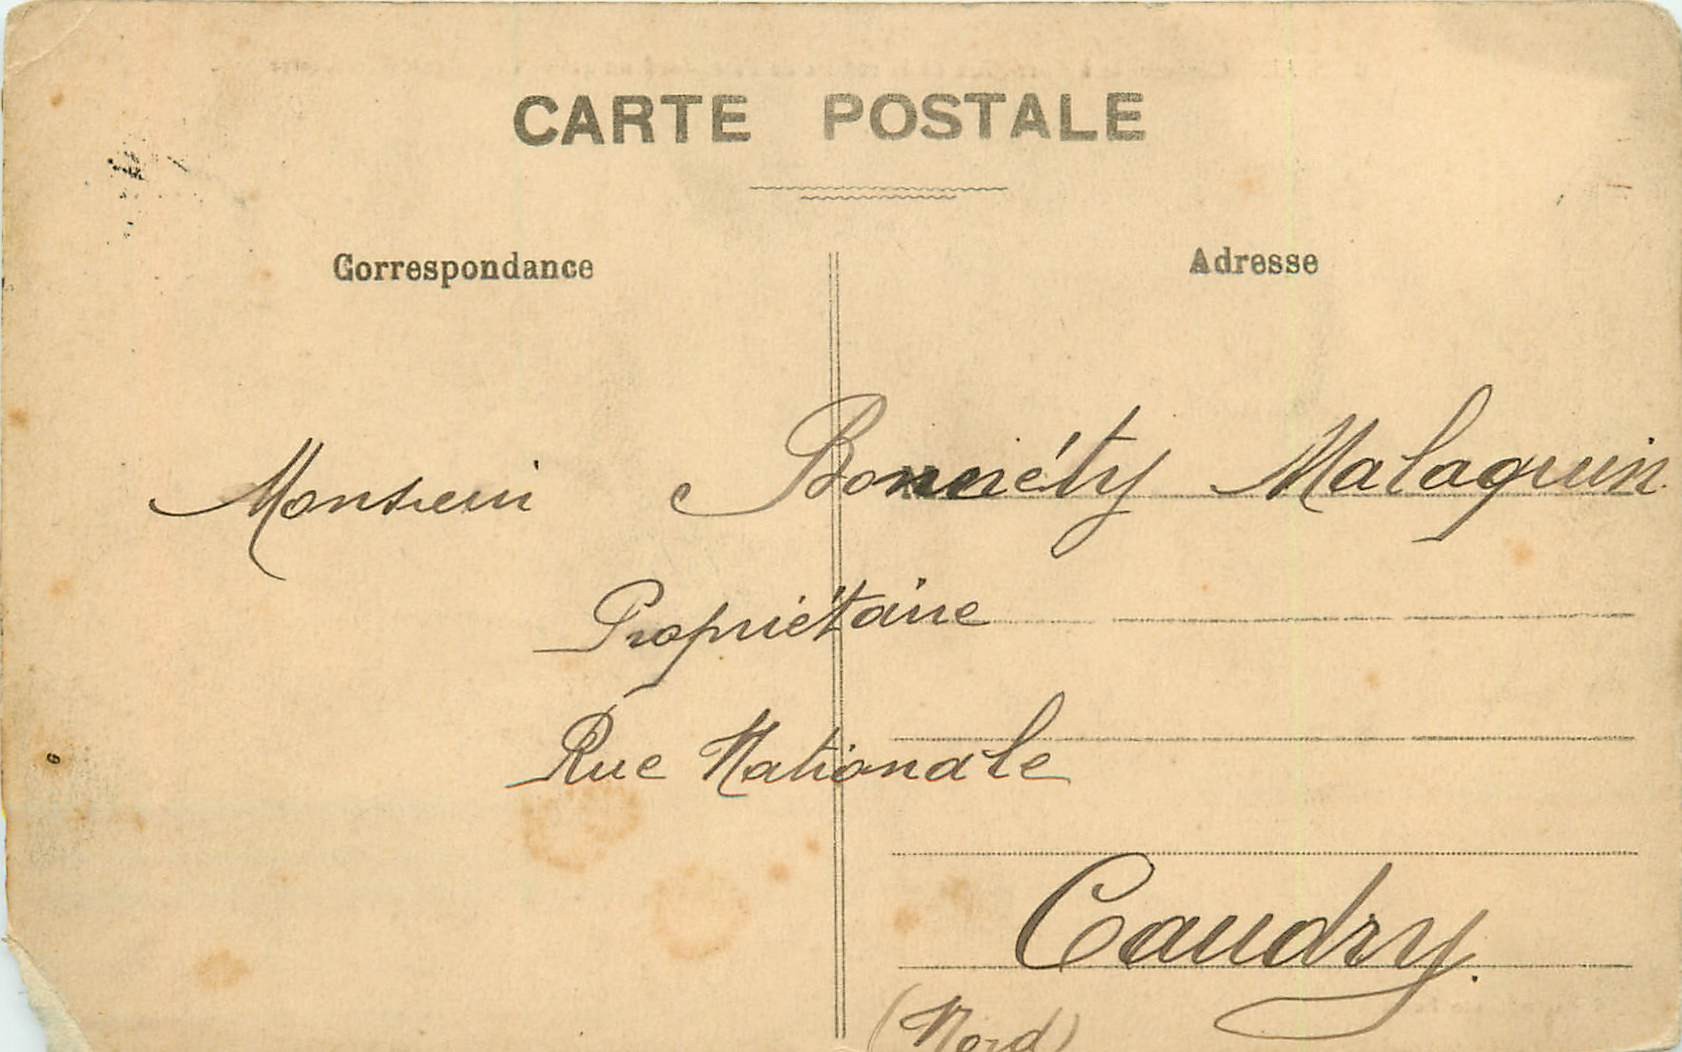 CARTE POSTALE
Correspondance
Adresse
Monsieur Bonnéty Malaquin
Propriétaire
Rue Nationale
Caudry.
(Nord)